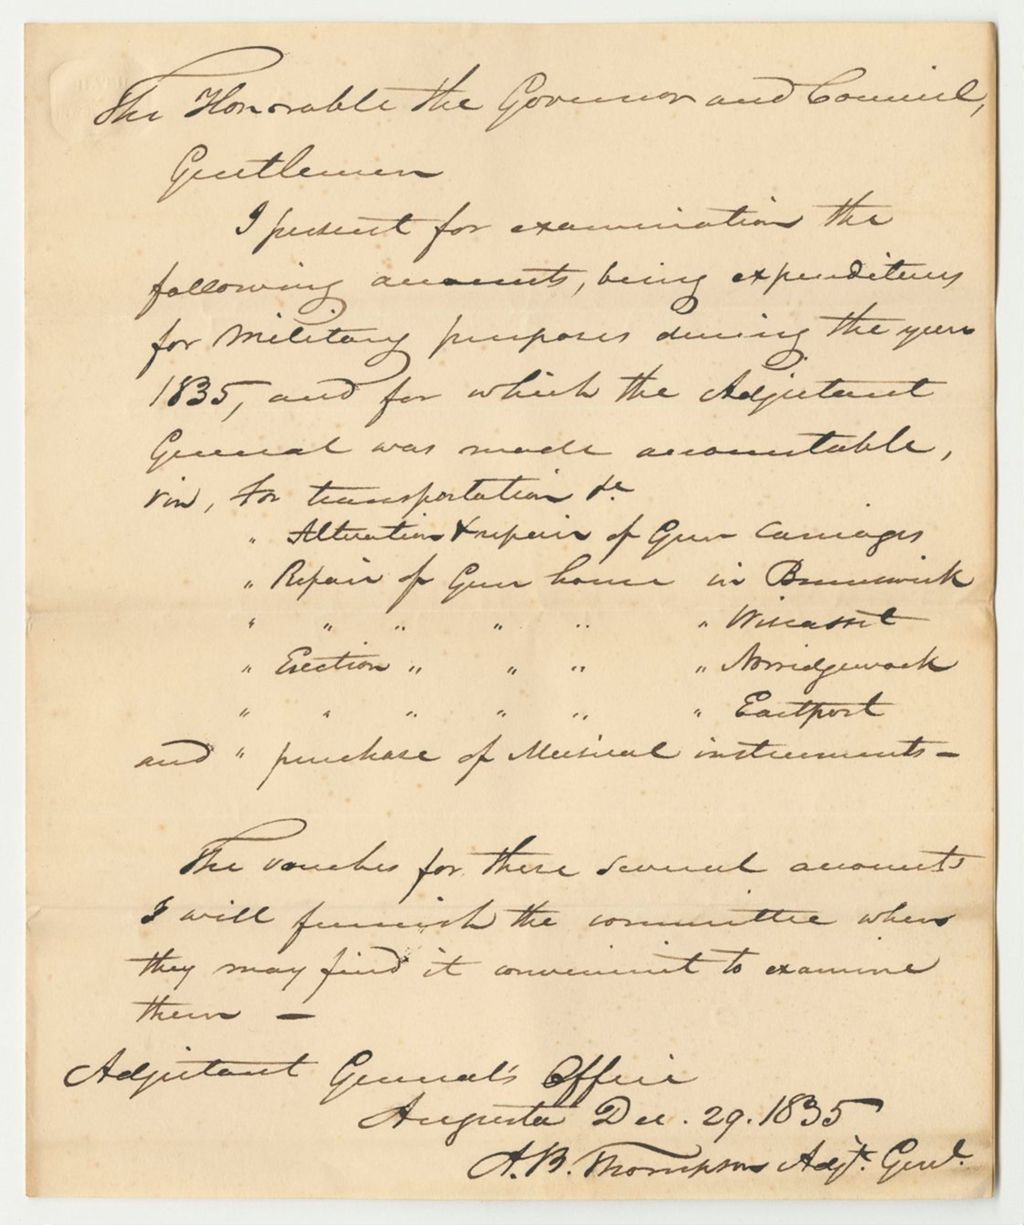 The Honorable the Governor and Council,
Gentlemen
I present for examination the
following accounts, being expenditures
for Military purposes during the year
1835, and for which the Adjutant
General was made accountable,
viz, for transportation &c
" Alteration & repair of Gun Carriages
" Repair of Gun house in Brunswick
" " " " " " Wiscasset
" Erection " " " " Norridgewock
" " " " " " Eastport
and " purchase of Musical instruments –
The vouches for these several accounts
I will furnish the committee when
they may find it convenient to examine
them –
Adjutant General's Office
Augusta Dec. 29. 1835
A. B. Thompson Adjt. Genl.